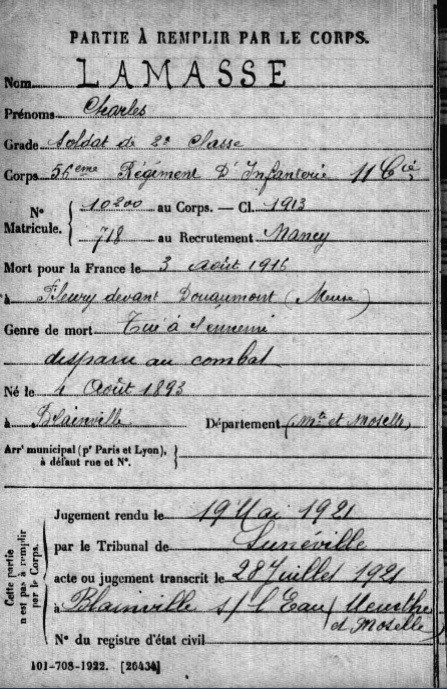 PARTIE À REMPLIR PAR LE CORPS.
Nom LAMASSE
Prénoms Charles
Grade Soldat de 2e Classe
Corps 56eme Régiment D'Infanterie 11 Cie
N° Matricule. { 10200 au Corps. — Cl. 1913
718 au Recrutement Nancy
Mort pour la France le 3 Août 1916
à Fleury devant Douaumont (Meuse)
Genre de mort Tué à l'ennemi
disparu au combat
Né le 1 Août 1893
à Blainville Département (Mthe et Moselle)
Arrt municipal (pr Paris et Lyon), à défaut rue et N°. }
Cette partie n'est pas à remplir par le Corps.
Jugement rendu le 19 Mai 1921
par le Tribunal de Lunéville
acte ou jugement transcrit le 28 Juillet 1921
à Blainville s/l Eau (Meurthe
et Moselle)
N° du registre d'état civil
101-708-1922. [26434]